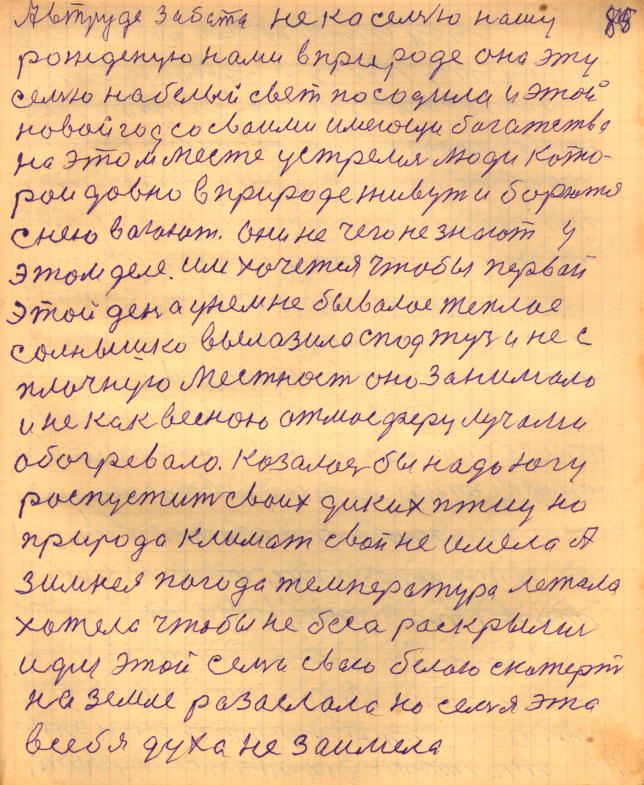 А в труде забота не ко семью нашу 85
рожденую нами в природе она эту
семью на белый свет посодила и этой
новой год со своими имеющи багатства
на этом месте устремля люди кото-
рои довно в природе живут и борятся
с нею воюют. они не чего не знают у
этом деле. им хочется чтобы первай
этой ден а у нем не бывалое теплое
солнышко вылазило спод туч и не с
плочную местност оно занимало
и не как весною отмосферу лучами
обогревало. козалос бы надо югу
роспустит своих диких птиц но
природа климат свой не имела А
зимняя погода температура летала
хотела чтобы небеса раскрыли
и для этой семи свою белою скатерт
на земле разаслала но семья эта
в себя духа не заимела